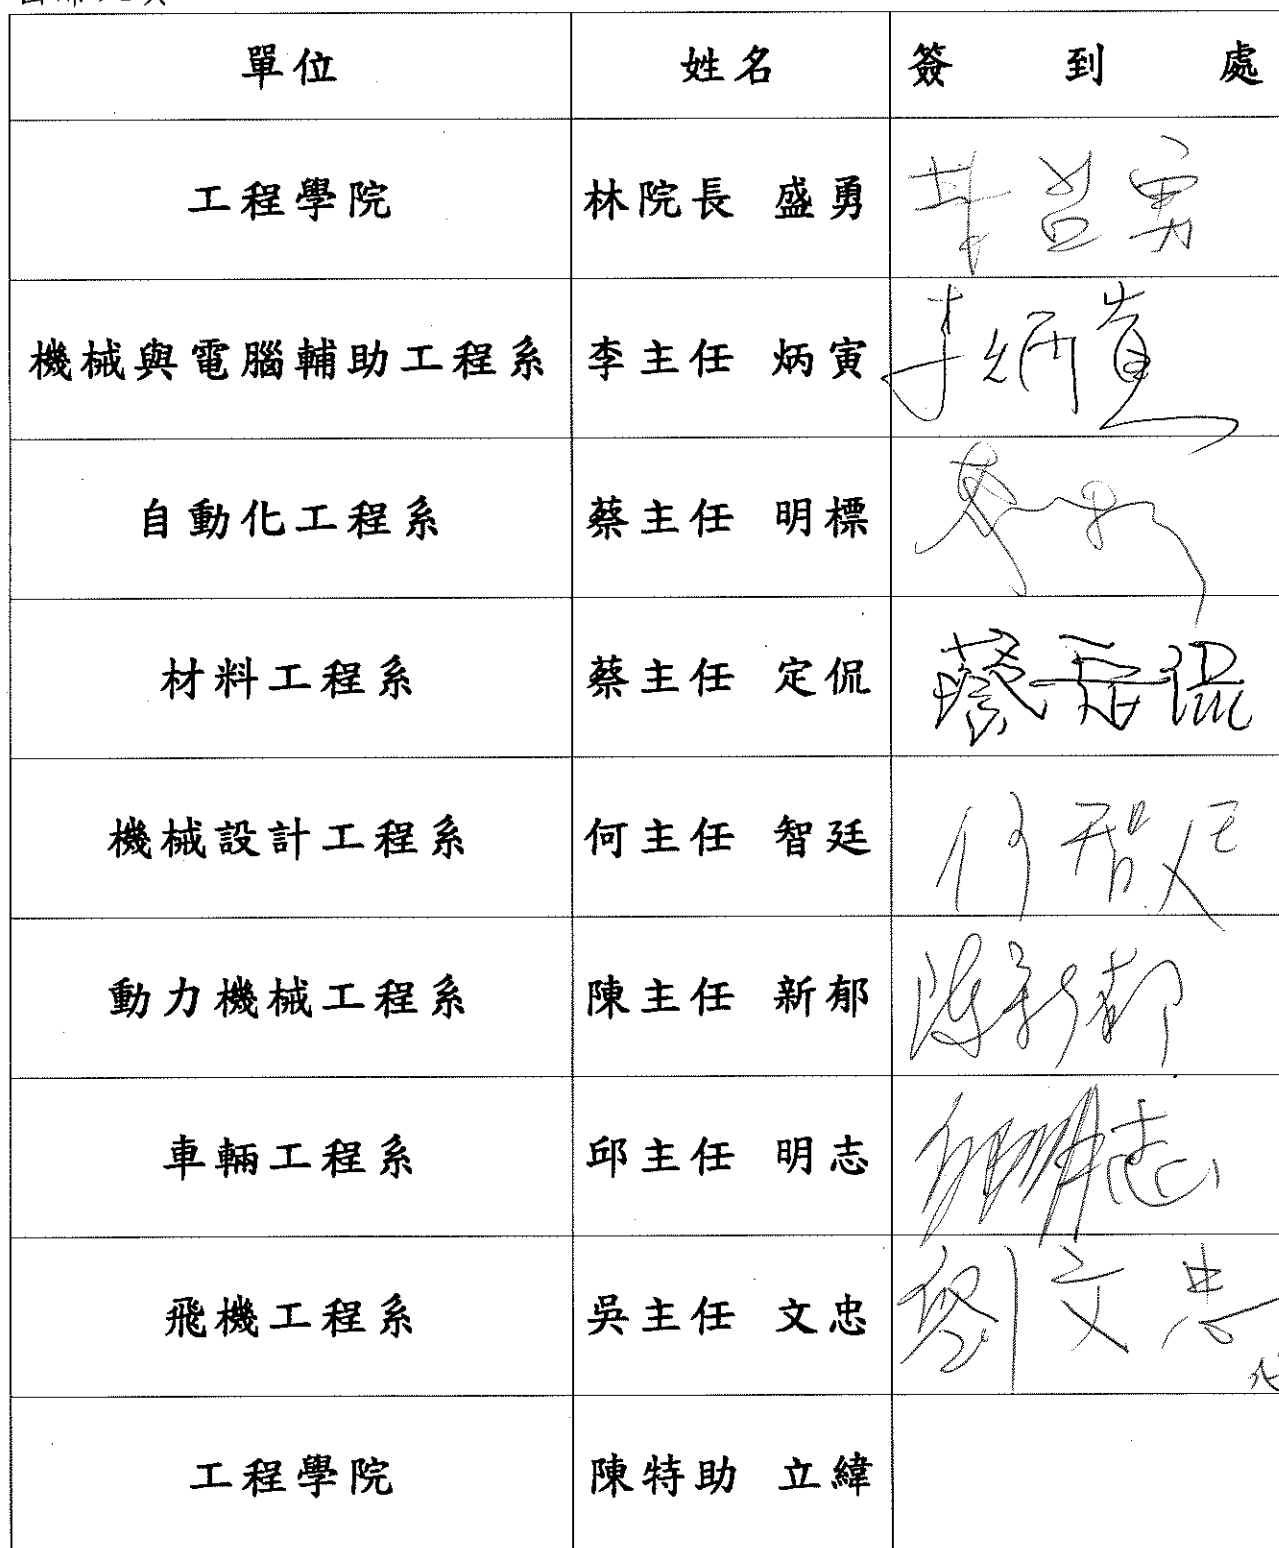 單位 姓名 簽到處
工程學院 林院長 盛勇 林盛勇
機械與電腦輔助工程系 李主任 炳寅 李炳寅
自動化工程系 蔡主任 明標
材料工程系 蔡主任 定侃 蔡定侃
機械設計工程系 何主任 智廷 何智廷
動力機械工程系 陳主任 新郁 陳新郁
車輛工程系 邱主任 明志 邱明志
飛機工程系 吳主任 文忠 劉文忠
工程學院 陳特助 立緯